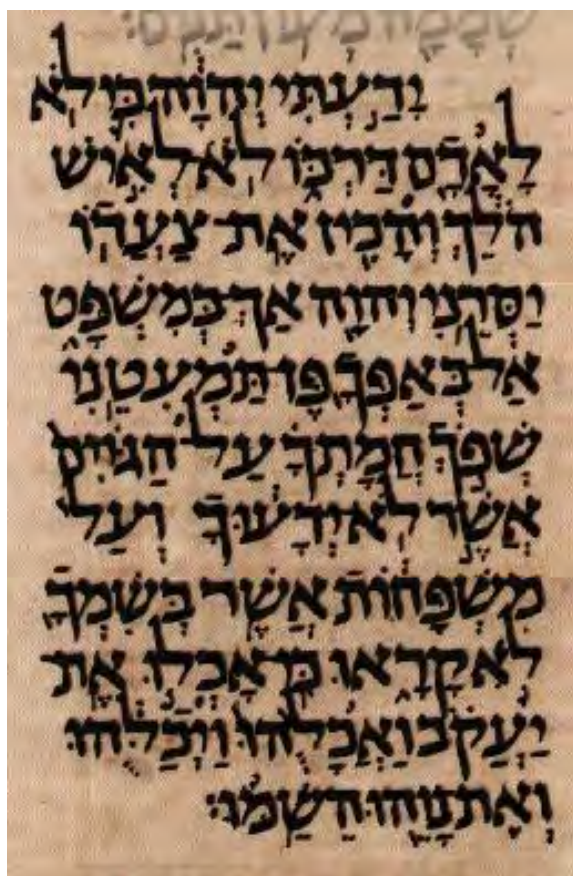 שְׁמָמָה מְעוֹן תַּנִּים׃
יָדַעְתִּי יְהוָה כִּי לֹא
לָאָדָם דַּרְכּוֹ לֹא לְאִישׁ
הֹלֵךְ וְהָכִין אֶת־צַעֲדוֹ
יַסְּרֵנִי יְהוָה אַךְ בְּמִשְׁפָּט
אַל בְּאַפְּךָ פֶּן תַּמְעִטֵנִי
שְׁפֹךְ חֲמָתְךָ עַל־הַגּוֹיִם
אֲשֶׁר לֹא יְדָעוּךָ וְעַל
מִשְׁפָּחוֹת אֲשֶׁר בְּשִׁמְךָ
לֹא קָרָאוּ כִּי אָכְלוּ אֶת
יַעֲקֹב וַאֲכָלֻהוּ וַיְכַלֻּהוּ
וְאֶת נָוֵהוּ הֵשַׁמּוּ׃